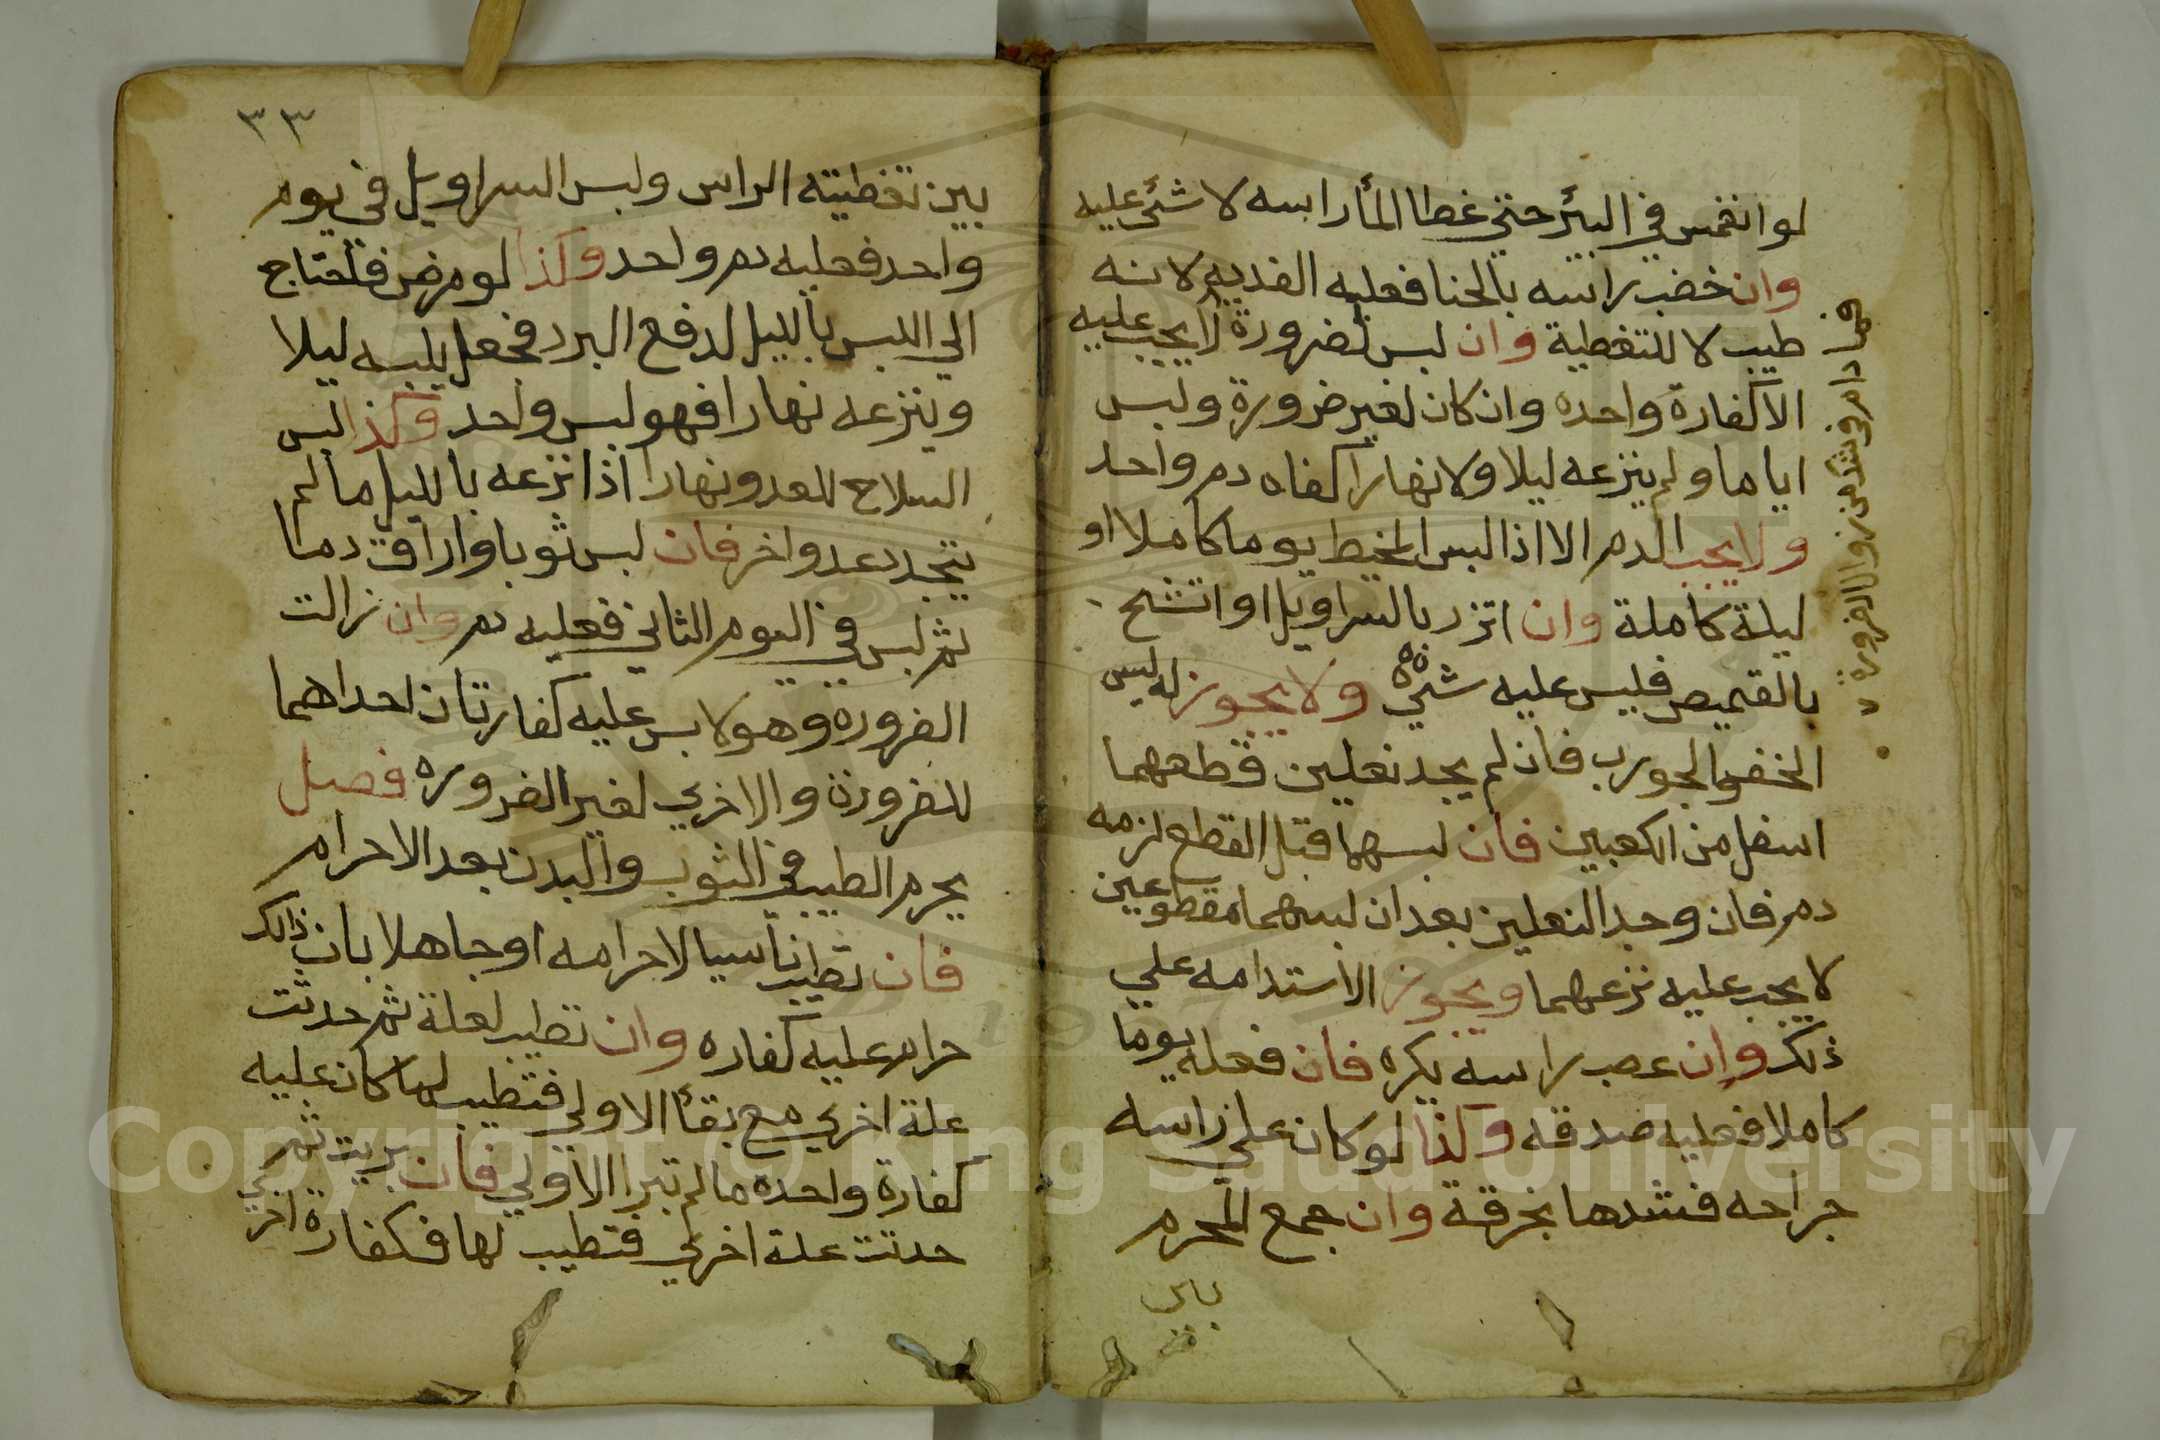 لو انغمس في البئر حتي غطا المأ راسه لا شئ عليه
وان خضب راسه بالحنا فعليه الفديه لانه
طيب لا للتغطية وان لبس لضرورة لا يجب عليه
الا كفارة واحده وان كان لغير ضرورة ولبس
اياما ولم ينزعه ليلا ولا نهارا كفاه دم واحد
ولا يجب الدم الا اذا لبس المخيط يوما كاملا او
ليلة كاملة وان اتزر بالسراويل او اتشح
بالقميص فليس عليه شئ ولا يجوز له لبس
الخف والجورب فان لم يجد نعلين قطعهما
اسفل من الكعبين فان لبسهما قبل القطع لزمه
دم فان وجد النعلين بعد ان لبسهما مقطوعين
لا يجب عليه نزعهما ويجوز الاستدامه علي
ذلك وان عصب راسه يكره فان فعله يوما
كاملا فعليه صدقه وكذا لو كان علي راسه
جراحه فشدها بخرقة وان جمع المحرم
بين
دام في شك من زوال الضرورة
٣٣
بين تغطيته الراس ولبس السراويل في يوم
واحد فعليه دم واحد وكذا لو مرض فاحتاج
الي اللبس بالليل لدفع البرد فجعل يلبسه ليلا
وينزعه نهارا فهو لبس واحد وكذا لبس
السلاح للعدو نهارا اذا نزعه بالليل ما لم
يتجدد عدو اخر فان لبس ثوبا واراق دما
ثم لبس في اليوم الثاني فعليه دم وان زالت
الضروره وهو لابس عليه كفارتان احداهما
للضرورة والاخري لغير الضروره فصل
يحرم الطيب في الثوب والبدن بعد الاحرام
فان تطيب ناسيا لاحرامه او جاهلا بان ذلك
حرام عليه كفاره وان تطيب لعلة ثم حدثت
علة اخري مع بقأ الاولي فتطيب لها كان عليه
كفارة واحده ما لم تبرا الاولي فان بريت ثم
حدثت علة اخري فتطيب لها فكفارة اخري
Copyright © King Saud University